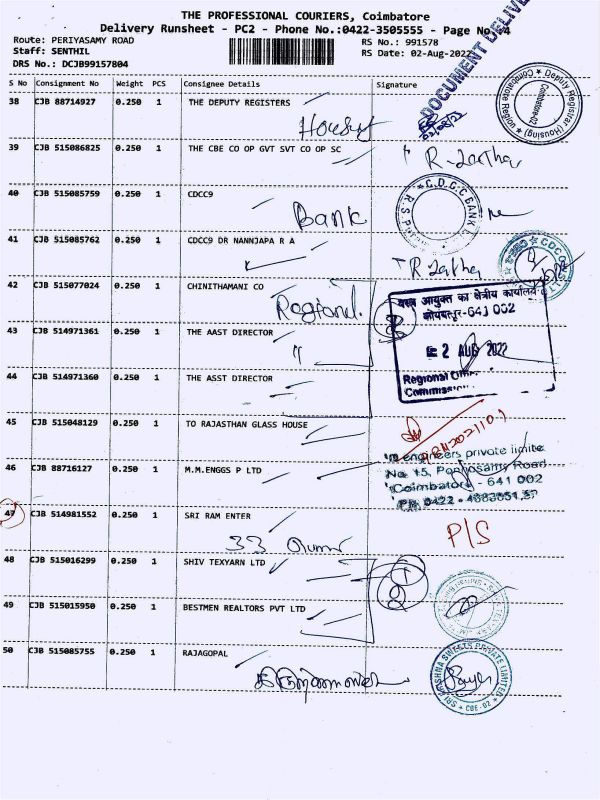 THE PROFESSIONAL COURIERS, Coimbatore
Delivery Runsheet - PC2 - Phone No.:0422-3505555 - Page No. 4
Route: PERIYASAMY ROAD
RS No.: 991578
Staff: SENTHIL
RS Date: 02-Aug-2022
DRS No.: DCJB99157804
DOCUMENT DELIVE
S No Consignment No Weight PCS Consignee Details Signature
38 CJB 88714927 0.250 1 THE DEPUTY REGISTERS
Deputy Registrar (Housing) Coimbatore Region
Coimbatore-02
39 CJB 515086825 0.250 1 THE CBE CO OP GVT SVT CO OP SC
40 CJB 515085759 0.250 1 CDCC9
Bank
C.D.C.C BANK
R.S.P
41 CJB 515085762 0.250 1 CDCC9 DR NANNJAPA R A
42 CJB 515077024 0.250 1 CHINITHAMANI CO
Regional.
वस्त्र आयुक्त का क्षेत्रीय कार्यालय
कोयम्बतूर-641 002
43 CJB 514971361 0.250 1 THE AAST DIRECTOR
2 AUG 2022
44 CJB 514971360 0.250 1 THE ASST DIRECTOR
Regional
45 CJB 515048129 0.250 1 TO RAJASTHAN GLASS HOUSE
46 CJB 88716127 0.250 1 M.M.ENGGS P LTD
engineers private limite
No 15, Road
Coimbatore - 641 002
47 CJB 514981552 0.250 1 SRI RAM ENTER
P/S
33
48 CJB 515016299 0.250 1 SHIV TEXYARN LTD
1
2
49 CJB 515015950 0.250 1 BESTMEN REALTORS PVT LTD
50 CJB 515085755 0.250 1 RAJAGOPAL
SRI KRISHNA SWEETS PRIVATE LIMITED
CBE-02